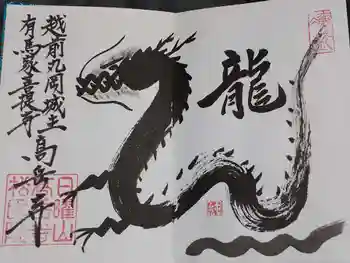 越前丸岡城主
有馬家菩提寺
高岳寺
龍
日曜山